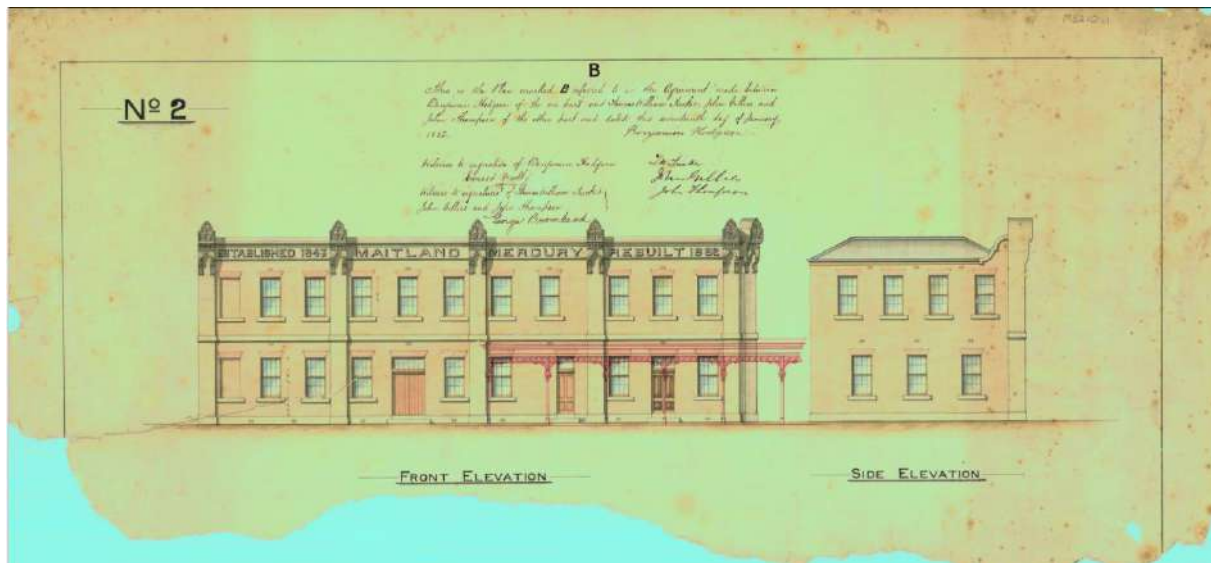 No 2
B
This is the Plan marked B referred to in the Agreement made between
Benjamin Hodgson of the one part and Thomas William Tucker, John Gillies and
John Thompson of the other part and dated this day of January
1882. Benjamin Hodgson
Witness to signature of Benjamin Hodgson
Witness to signatures of Thomas William Tucker
John Gillies and John Thompson
George
T W Tucker
John Gillies
John Thompson
ESTABLISHED 1843 MAITLAND MERCURY REBUILT 1882
FRONT ELEVATION
SIDE ELEVATION